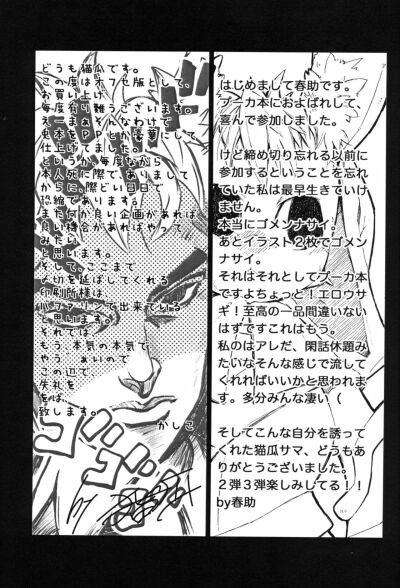 どうも猫瓜です。
この度はオフセ版として、
お買い上げ
毎度有り難うございます。
えーまぁそんなわけで
兎本をPPとか豪華にして
仕上げてました。
というか、毎度ながら
本人死に際で、ありまして
からに、際どい日日で
恐縮であります。
まぁ何か良い企画があれば
良い機会があればやって
みたい
と思います。
そして、ここまで
〆切を延ばしてくれる
印刷所様は
バファリンで出来ている
と思います。
それでは
もう、本気の本気で
やヴぁいので
この辺で
失礼を
ば、
致します。
かしこ
ゴゴゴ
by
はじめまして春助です。
プーカ本におよばれして、
喜んで参加しました。
けど締め切り忘れる以前に
参加するということを忘れ
ていた私は最早生きていけ
ません。
本当にゴメンナサイ。
あとイラスト２枚でゴメン
ナサイ。
それはそれとしてプーカ本
ですよちょっと！エロウサ
ギ！至高の一品間違いない
はずですこれはもう。
私のはアレだ、閑話休題み
たいなそんな感じで流して
くれればいいかと思われま
す。多分みんな凄い（
そしてこんな自分を誘って
くれた猫瓜サマ、どうもあ
りがとうございました。
２弾３弾楽しみしてる！！
by春助